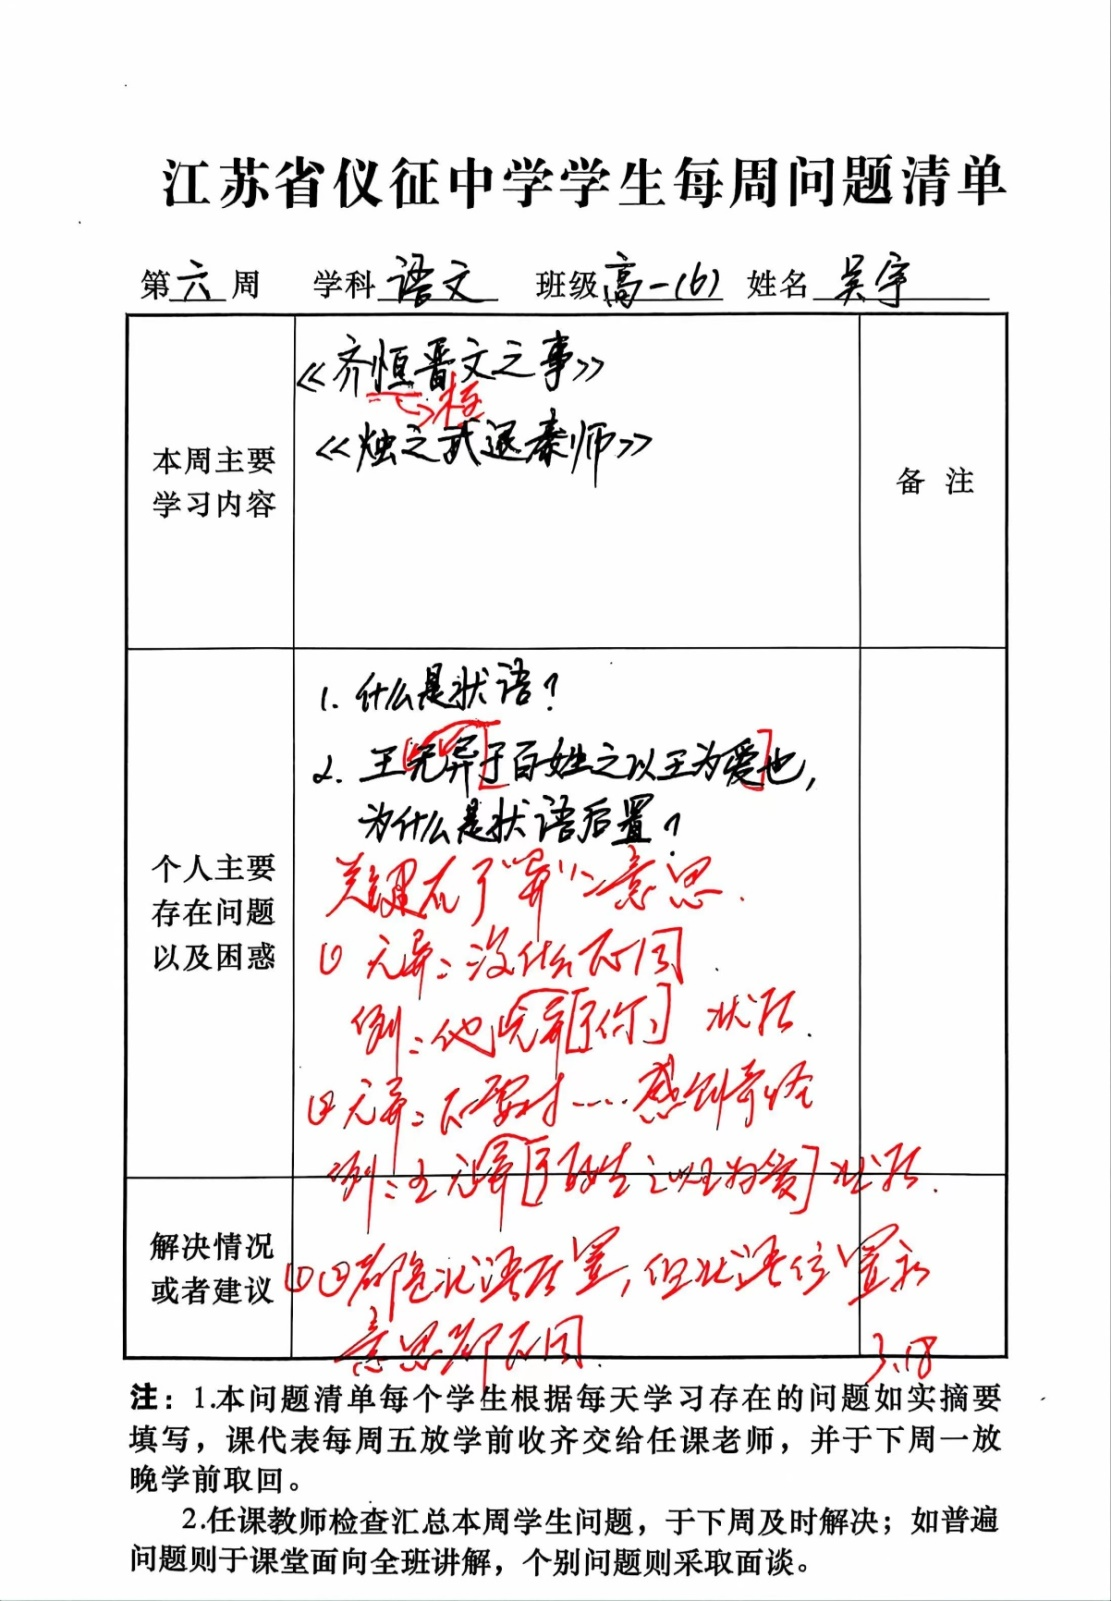 江苏省仪征中学学生每周问题清单
第六周 学科语文 班级高一(6) 姓名吴宇
本周主要
学习内容
《齐恒晋文之事》
桓
《烛之武退秦师》
备 注
个人主要
存在问题
以及困惑
1. 什么是状语?
2. 王无异于百姓之以王为爱也,
为什么是状语后置?
关键在于"异"之意思.
① 无异:没什么不同
例:他无异[于你] 状后.
② 无异:不要对……感到奇怪
例:王无异[于百姓之以王为爱] 状后.
解决情况
或者建议
①②都是状语后置,但状语位置和
意思都不同.
3.18
注:1.本问题清单每个学生根据每天学习存在的问题如实摘要
填写,课代表每周五放学前收齐交给任课老师,并于下周一放
晚学前取回。
2.任课教师检查汇总本周学生问题,于下周及时解决;如普遍
问题则于课堂面向全班讲解,个别问题则采取面谈。